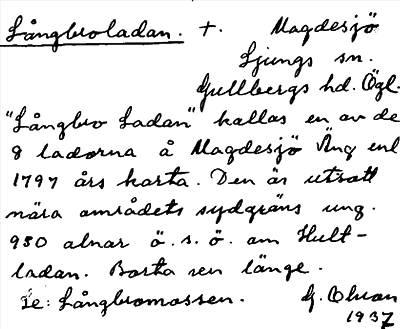 Långbroladan. +. Magdesjö
Ljungs sn.
Gullbergs hd. Ögl.
"Långbro Ladan" kallas en av de
8 ladorna å Magdesjö Äng enl
1797 års karta. Den är utsatt
nära områdets sydgräns ung.
930 alnar ö. s. ö. om Hult-
ladan. Borta sen länge.
Se: Långbromossen. G. Olson
1937